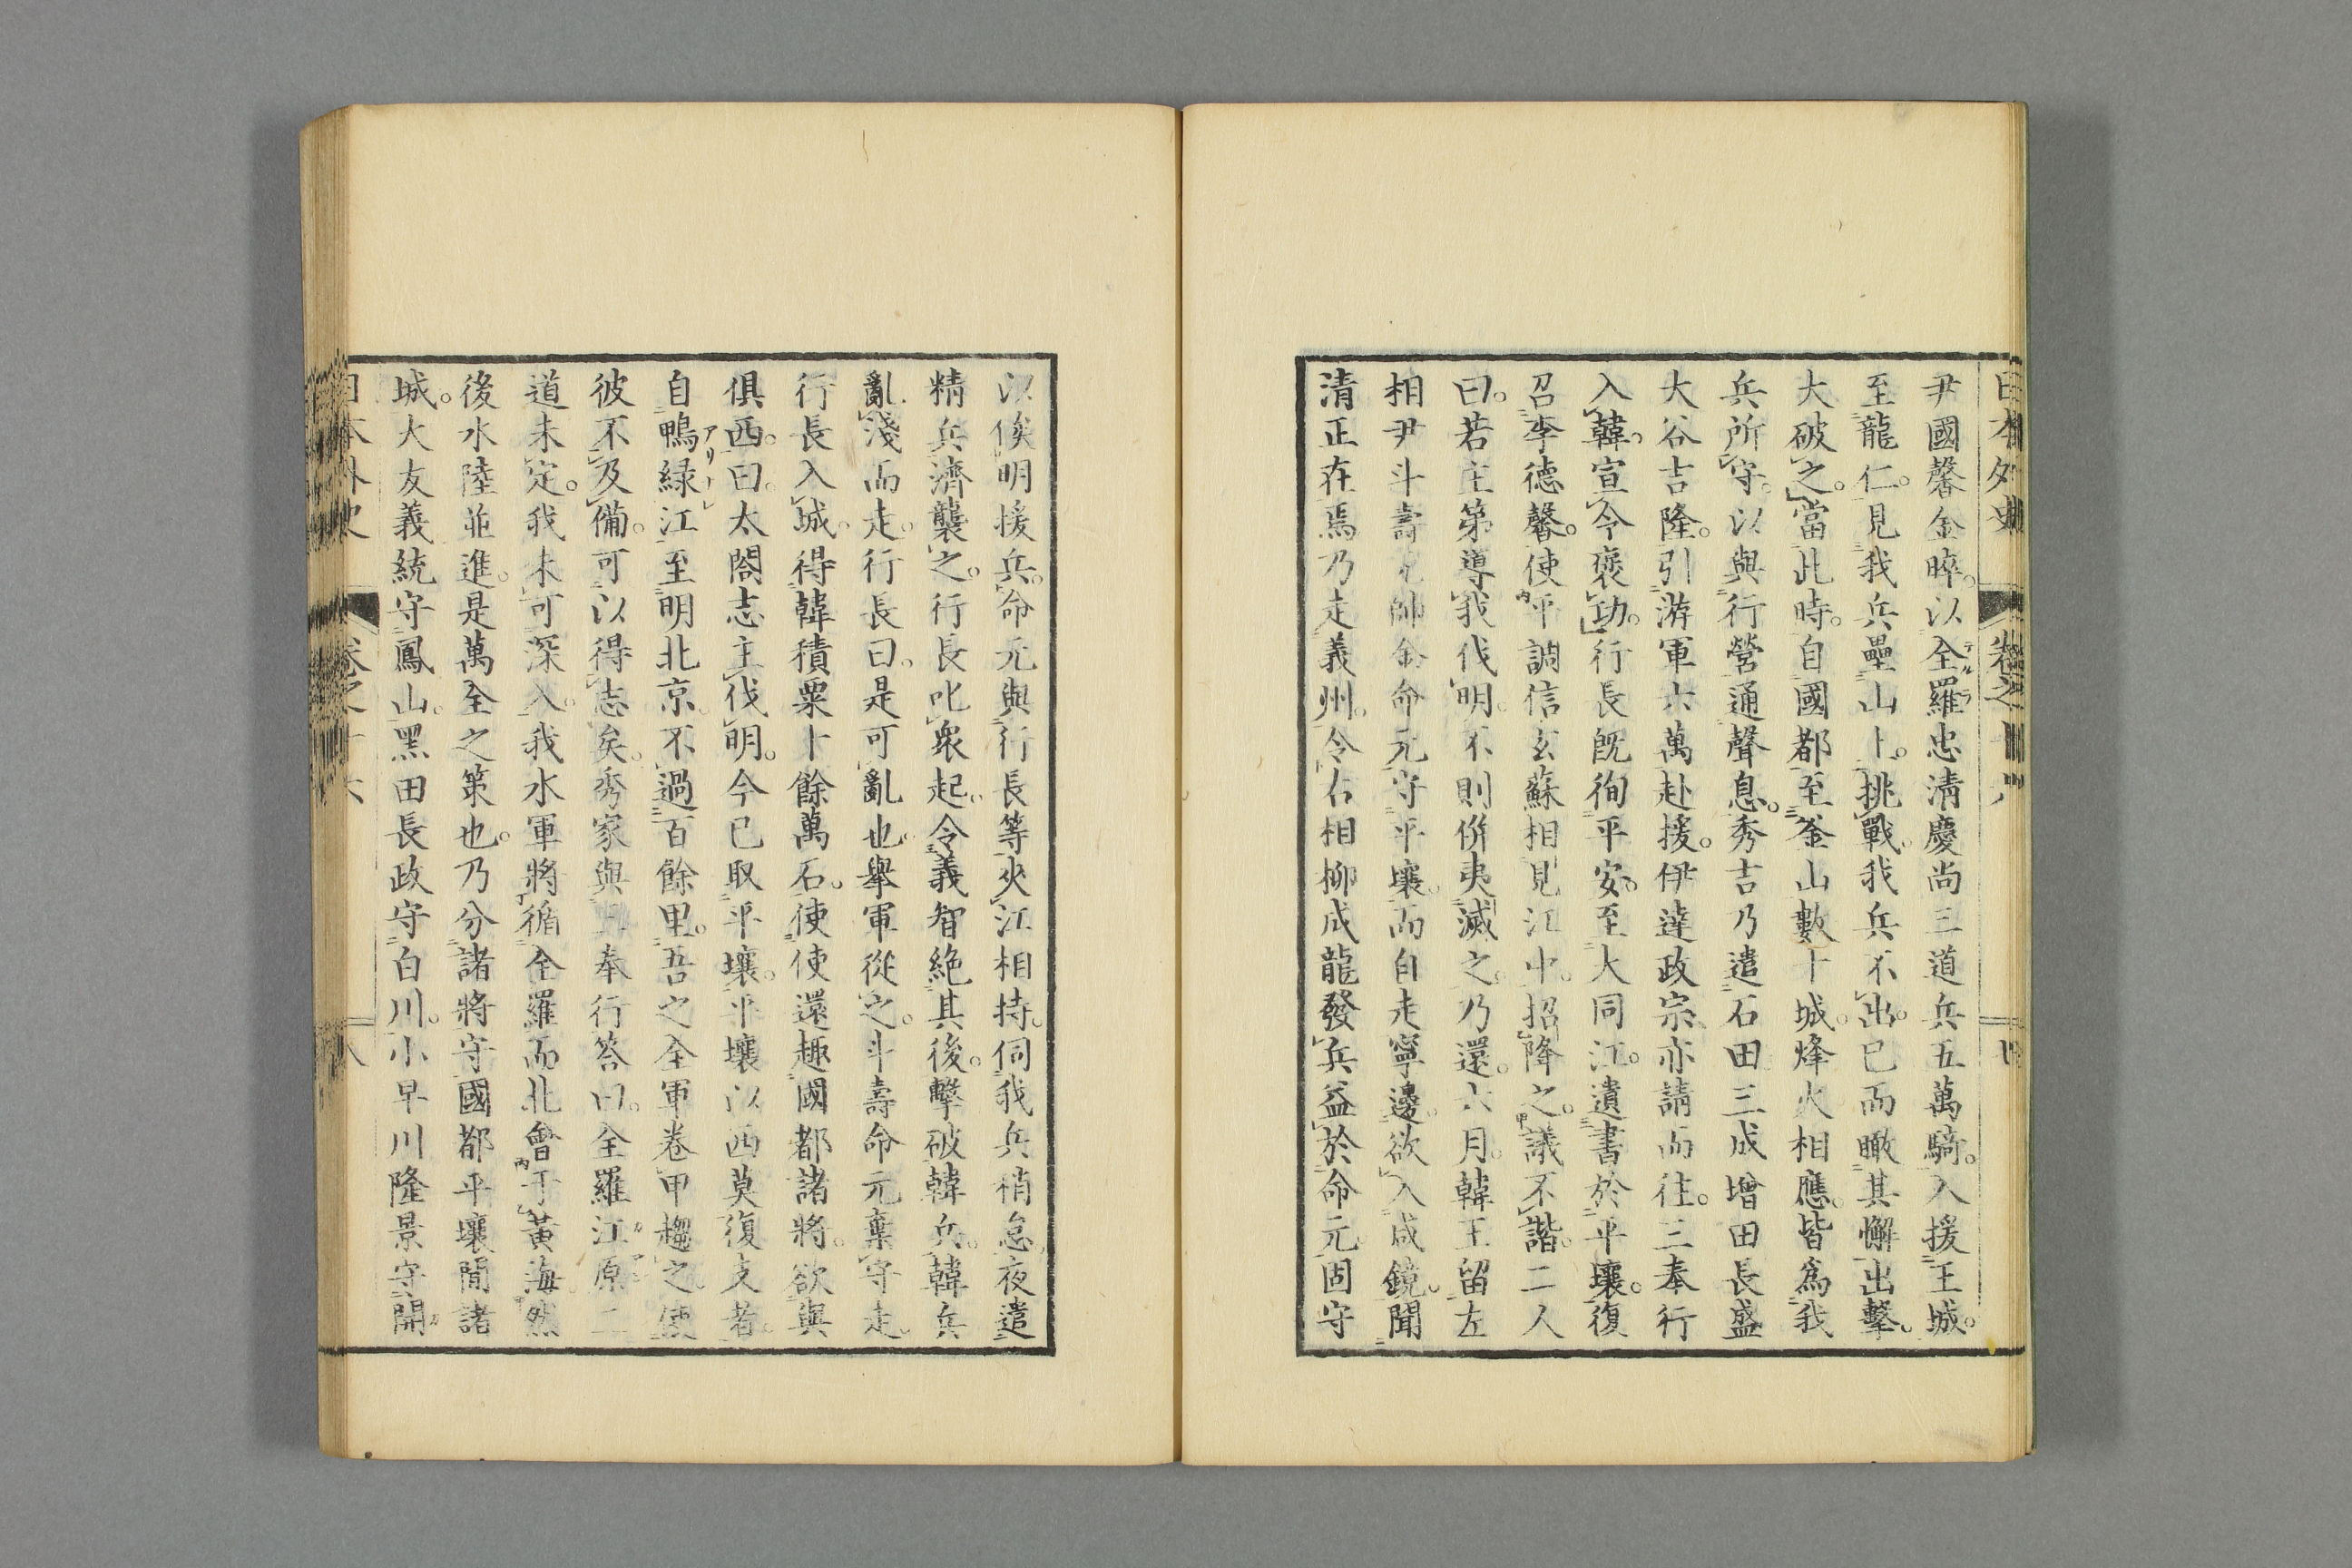 日本外史
卷之十六
尹國馨金晬。以全羅忠淸慶尚三道兵五萬騎。入援王城。
至龍仁。見我兵壘山上。挑戰。我兵不出。已而瞰其懈出擊。
大破之。當此時。自國都至釜山數十城。烽火相應。皆爲我
兵所守。以與行營通聲息。秀吉乃遣石田三成增田長盛
大谷吉隆。引游軍六萬赴援。伊達政宗亦請而往。三奉行
入韓。宣令褒功。行長既徇平安。至大同江。遺書於平壤。復
召李德馨。使平調信玄蘇相見江中。招降之。議不諧。二人
曰。若主第導我伐明。不則併夷滅之。乃還。六月。韓王留左
相尹斗壽元帥金命元守平壤。而自走寧邊。欲入咸鏡。聞
清正在焉乃走義州。令右相柳成龍發兵益於命元。固守
以俟明援兵。命元與行長等夾江相持。伺我兵稍怠。夜遣
精兵濟襲之。行長叱衆起。令義智絕其後。擊破韓兵。韓兵
亂淺而走。行長曰。是可亂也。舉軍從之。斗壽命元棄守走。
行長入城。得韓積粟十餘萬石。使使還趣國都諸將。欲與
俱西。曰。太閤志主伐明。今已取平壤。平壤以西莫復支者。
自鴨緑江至明北京。不過百餘里。吾之全軍卷甲趨之。使
彼不及備。可以得志矣。秀家與三奉行答曰。全羅江原二
道未定。我未可深入。我水軍將循全羅而北會于黃海。然
後水陸並進。是萬全之策也。乃分諸將守國都平壤間諸
城。大友義統守鳳山。黑田長政守白川。小早川隆景守開
日本外史
卷之十六